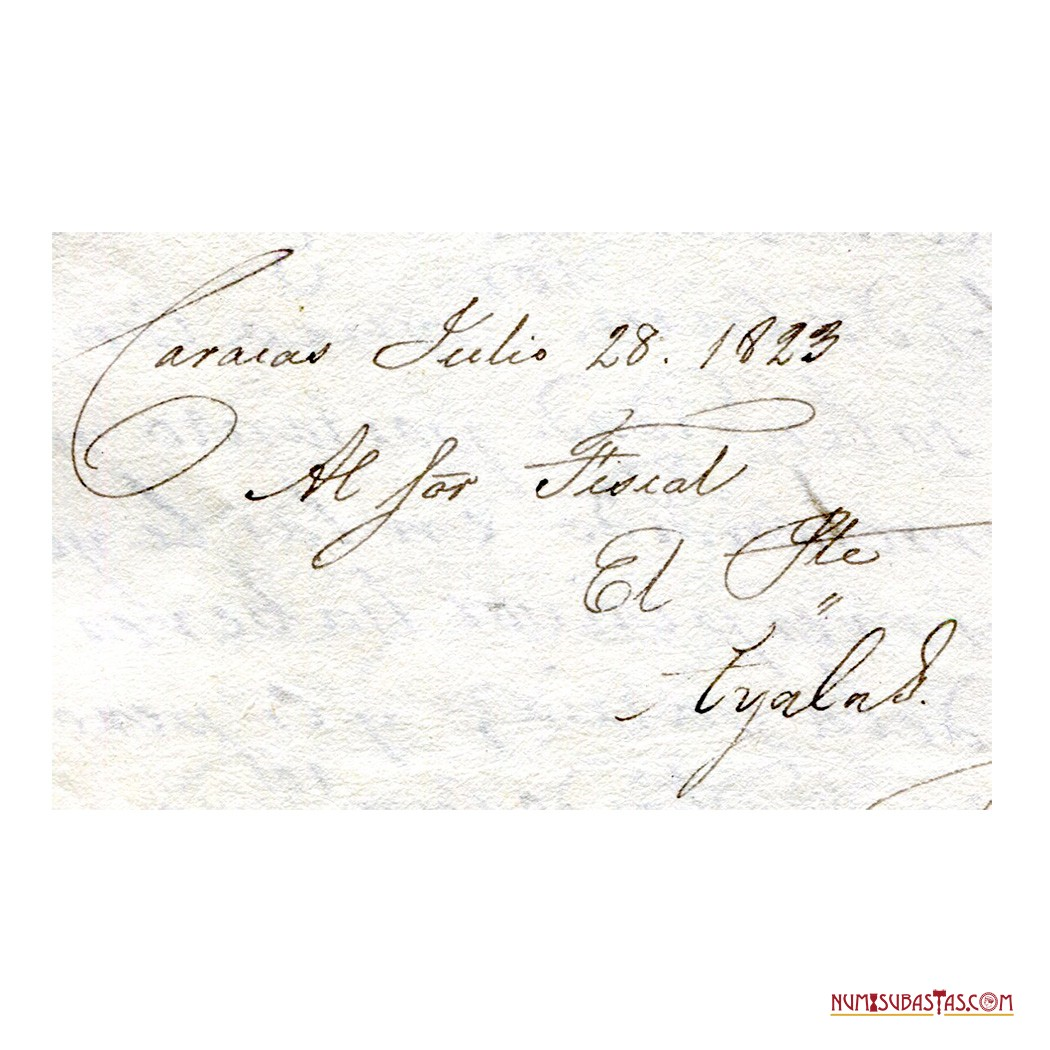 Caracas Julio 28. 1823
Al Sōr Fiscal
El Pte
"
Ayala
NUMISUBASTAS.COM